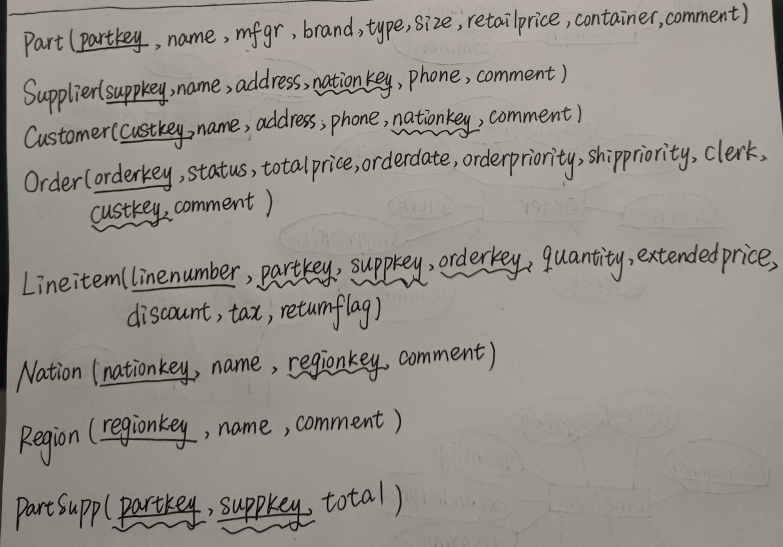 Part(partkey, name, mfgr, brand, type, size, retailprice, container, comment)
Supplier(suppkey, name, address, nationkey, phone, comment)
Customer(custkey, name, address, phone, nationkey, comment)
Order(orderkey, status, totalprice, orderdate, orderpriority, shippriority, clerk,
custkey, comment)
Lineitem(linenumber, partkey, suppkey, orderkey, quantity, extendedprice,
discount, tax, returnflag)
Nation(nationkey, name, regionkey, comment)
Region(regionkey, name, comment)
PartSupp(partkey, suppkey, total)